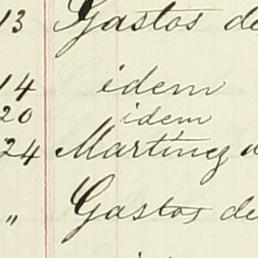 13 Gastos de
14 idem
20 idem
24 Martínez
" Gastos de